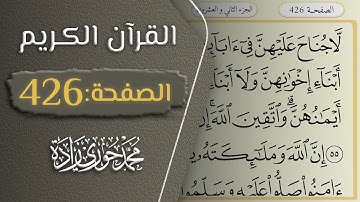 القرآن الكريم
الصفحة:426
محمد حوري زادة
الصفحة 426
الجزء الثاني و العشرو
لَّا جُنَاحَ عَلَيْهِنَّ فِىٓ ءَابَآىِٕ
أَبْنَآءِ إِخْوَٰنِهِنَّ وَلَآ أَبْنَآ
أَيْمَٰنُهُنَّ ۗ وَٱتَّقِينَ ٱللَّهَ ۚ إِ
٥٥ إِنَّ ٱللَّهَ وَمَلَٰٓئِكَتَهُۥ
ءَامَنُوا۟ صَلُّوا۟ عَلَيْهِ وَسَلِّمُوا۟